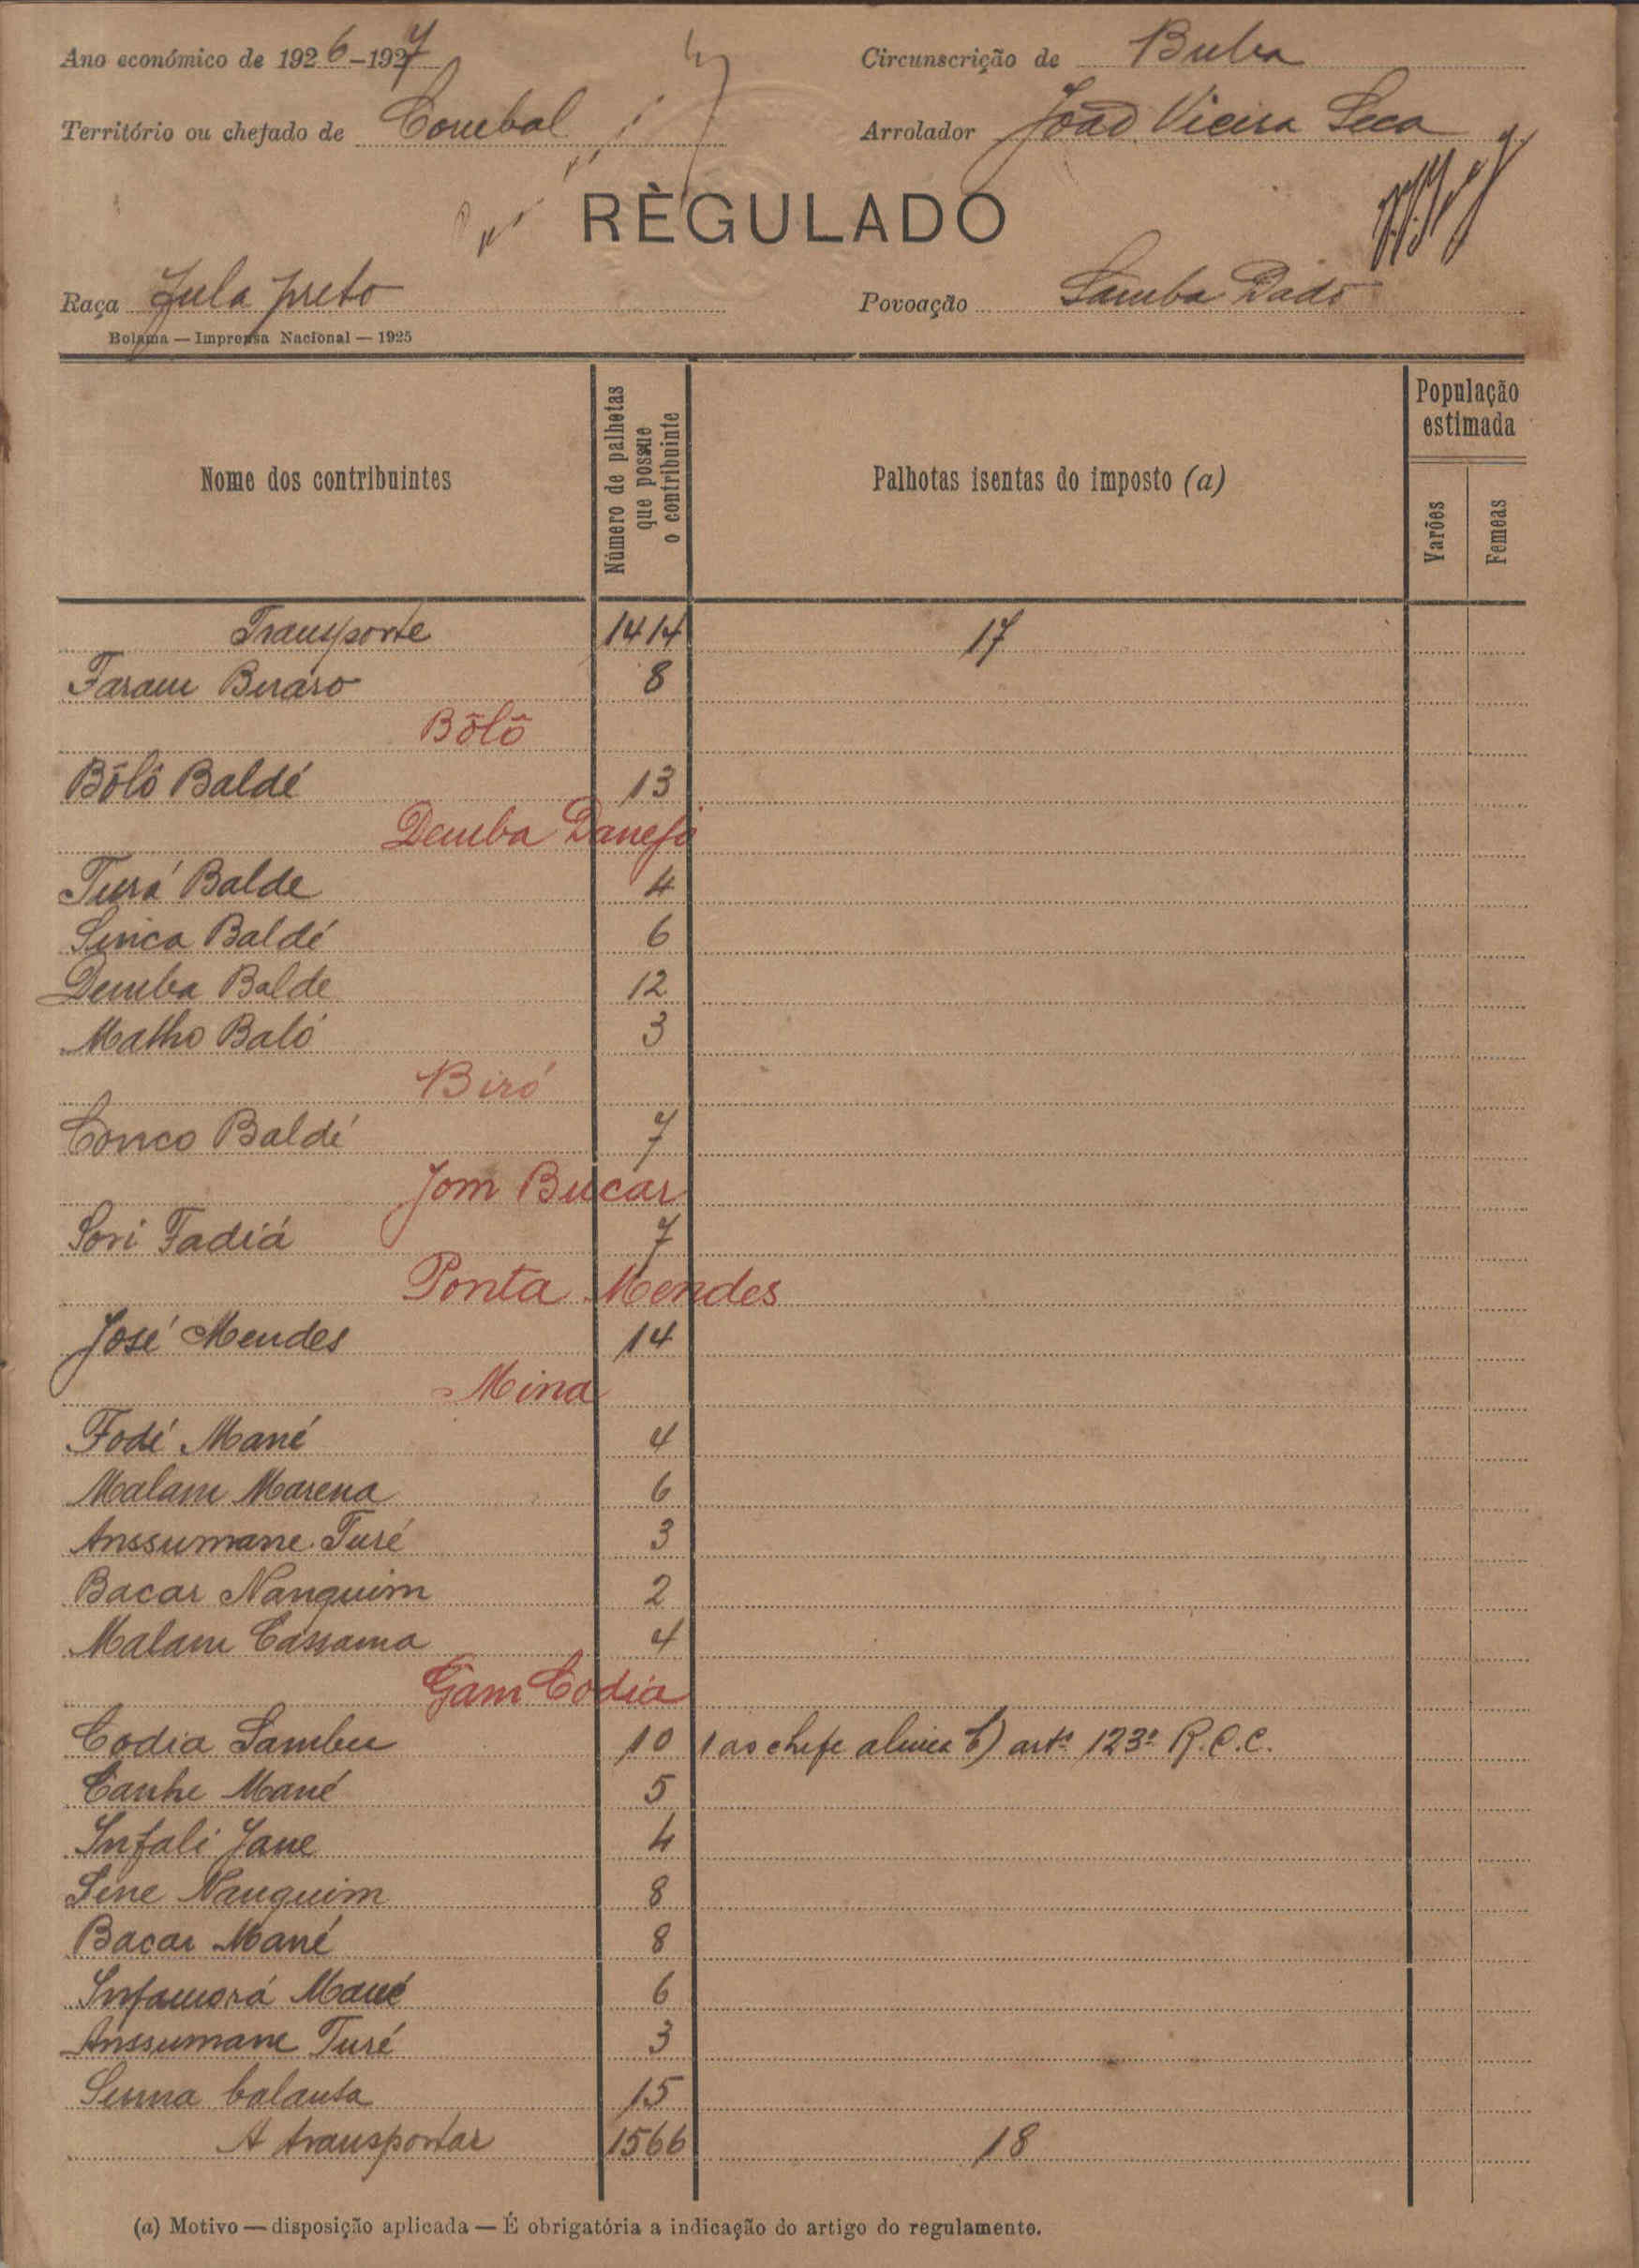 Ano económico de 1926-1927
Circunscrição de Buba
Território ou chefado de Corubal
Arrolador João Vieira Seca
RÈGULADO
Raça Fula preto
Povoação Samba Dado
Bolama — Imprensa Nacional — 1925
Nome dos contribuintes
Número de palhotas que possue o contribuinte
Palhotas isentas do imposto (a)
População estimada
Varões
Femeas
Transporte 1414 17
Faram Buaro 8
Bôlô
Bôlô Baldé 13
Demba Danejo
Turá Balde 4
Sinca Baldé 6
Demba Balde 12
Matho Baló 3
Biró
Conco Baldé 7
Jom Bucar
Sori Fadiá 7
Ponta Mendes
José Mendes 14
Mina
Fodé Mané 4
Malam Marena 6
Anssumane Turé 3
Bacar Nanquim 2
Malam Cassama 4
Gam Codia
Codia Sambu 10 1 ao chefe alinea b) artº 123º R.C.C.
Canhe Mané 5
Infali Jane 4
Sene Nanquim 8
Bacar Mané 8
Infamorá Mané 6
Anssumane Turé 3
Suma balanta 15
A transportar 1566 18
(a) Motivo — disposição aplicada — É obrigatória a indicação do artigo do regulamento.